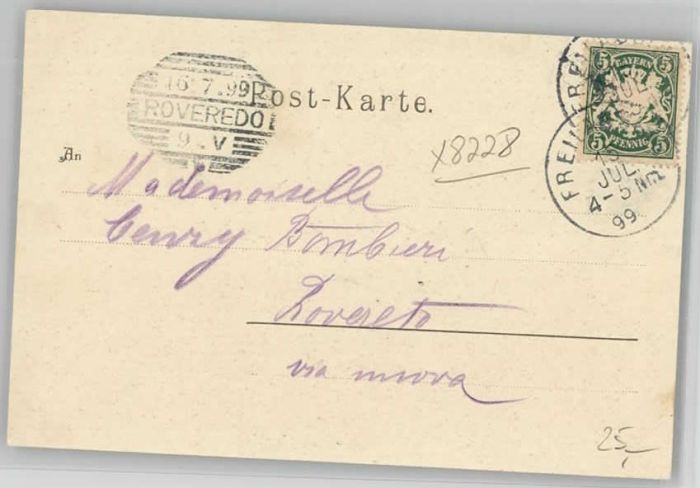 16 7.99
ROVEREDO
9-V
Post-Karte.
5 BAYERN 5
5 PFENNIG 5
JUL.
4-5 Nm
99
x8228
An
Mademoiselle
Bombieri
Rovereto
via nuova
25,-